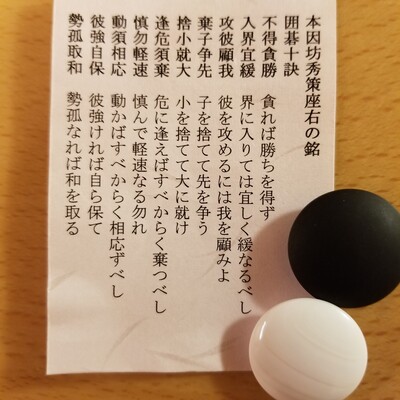 本因坊秀策座右の銘
囲碁十訣
不得貪勝　貪れば勝ちを得ず
入界宜緩　界に入りては宜しく緩なるべし
攻彼顧我　彼を攻めるには我を顧みよ
棄子争先　子を捨てて先を争う
捨小就大　小を捨てて大に就け
逢危須棄　危に逢えばすべからく棄つべし
慎勿軽速　慎んで軽速なる勿れ
動須相応　動かばすべからく相応ずべし
彼強自保　彼強ければ自ら保て
勢孤取和　勢孤なれば和を取る